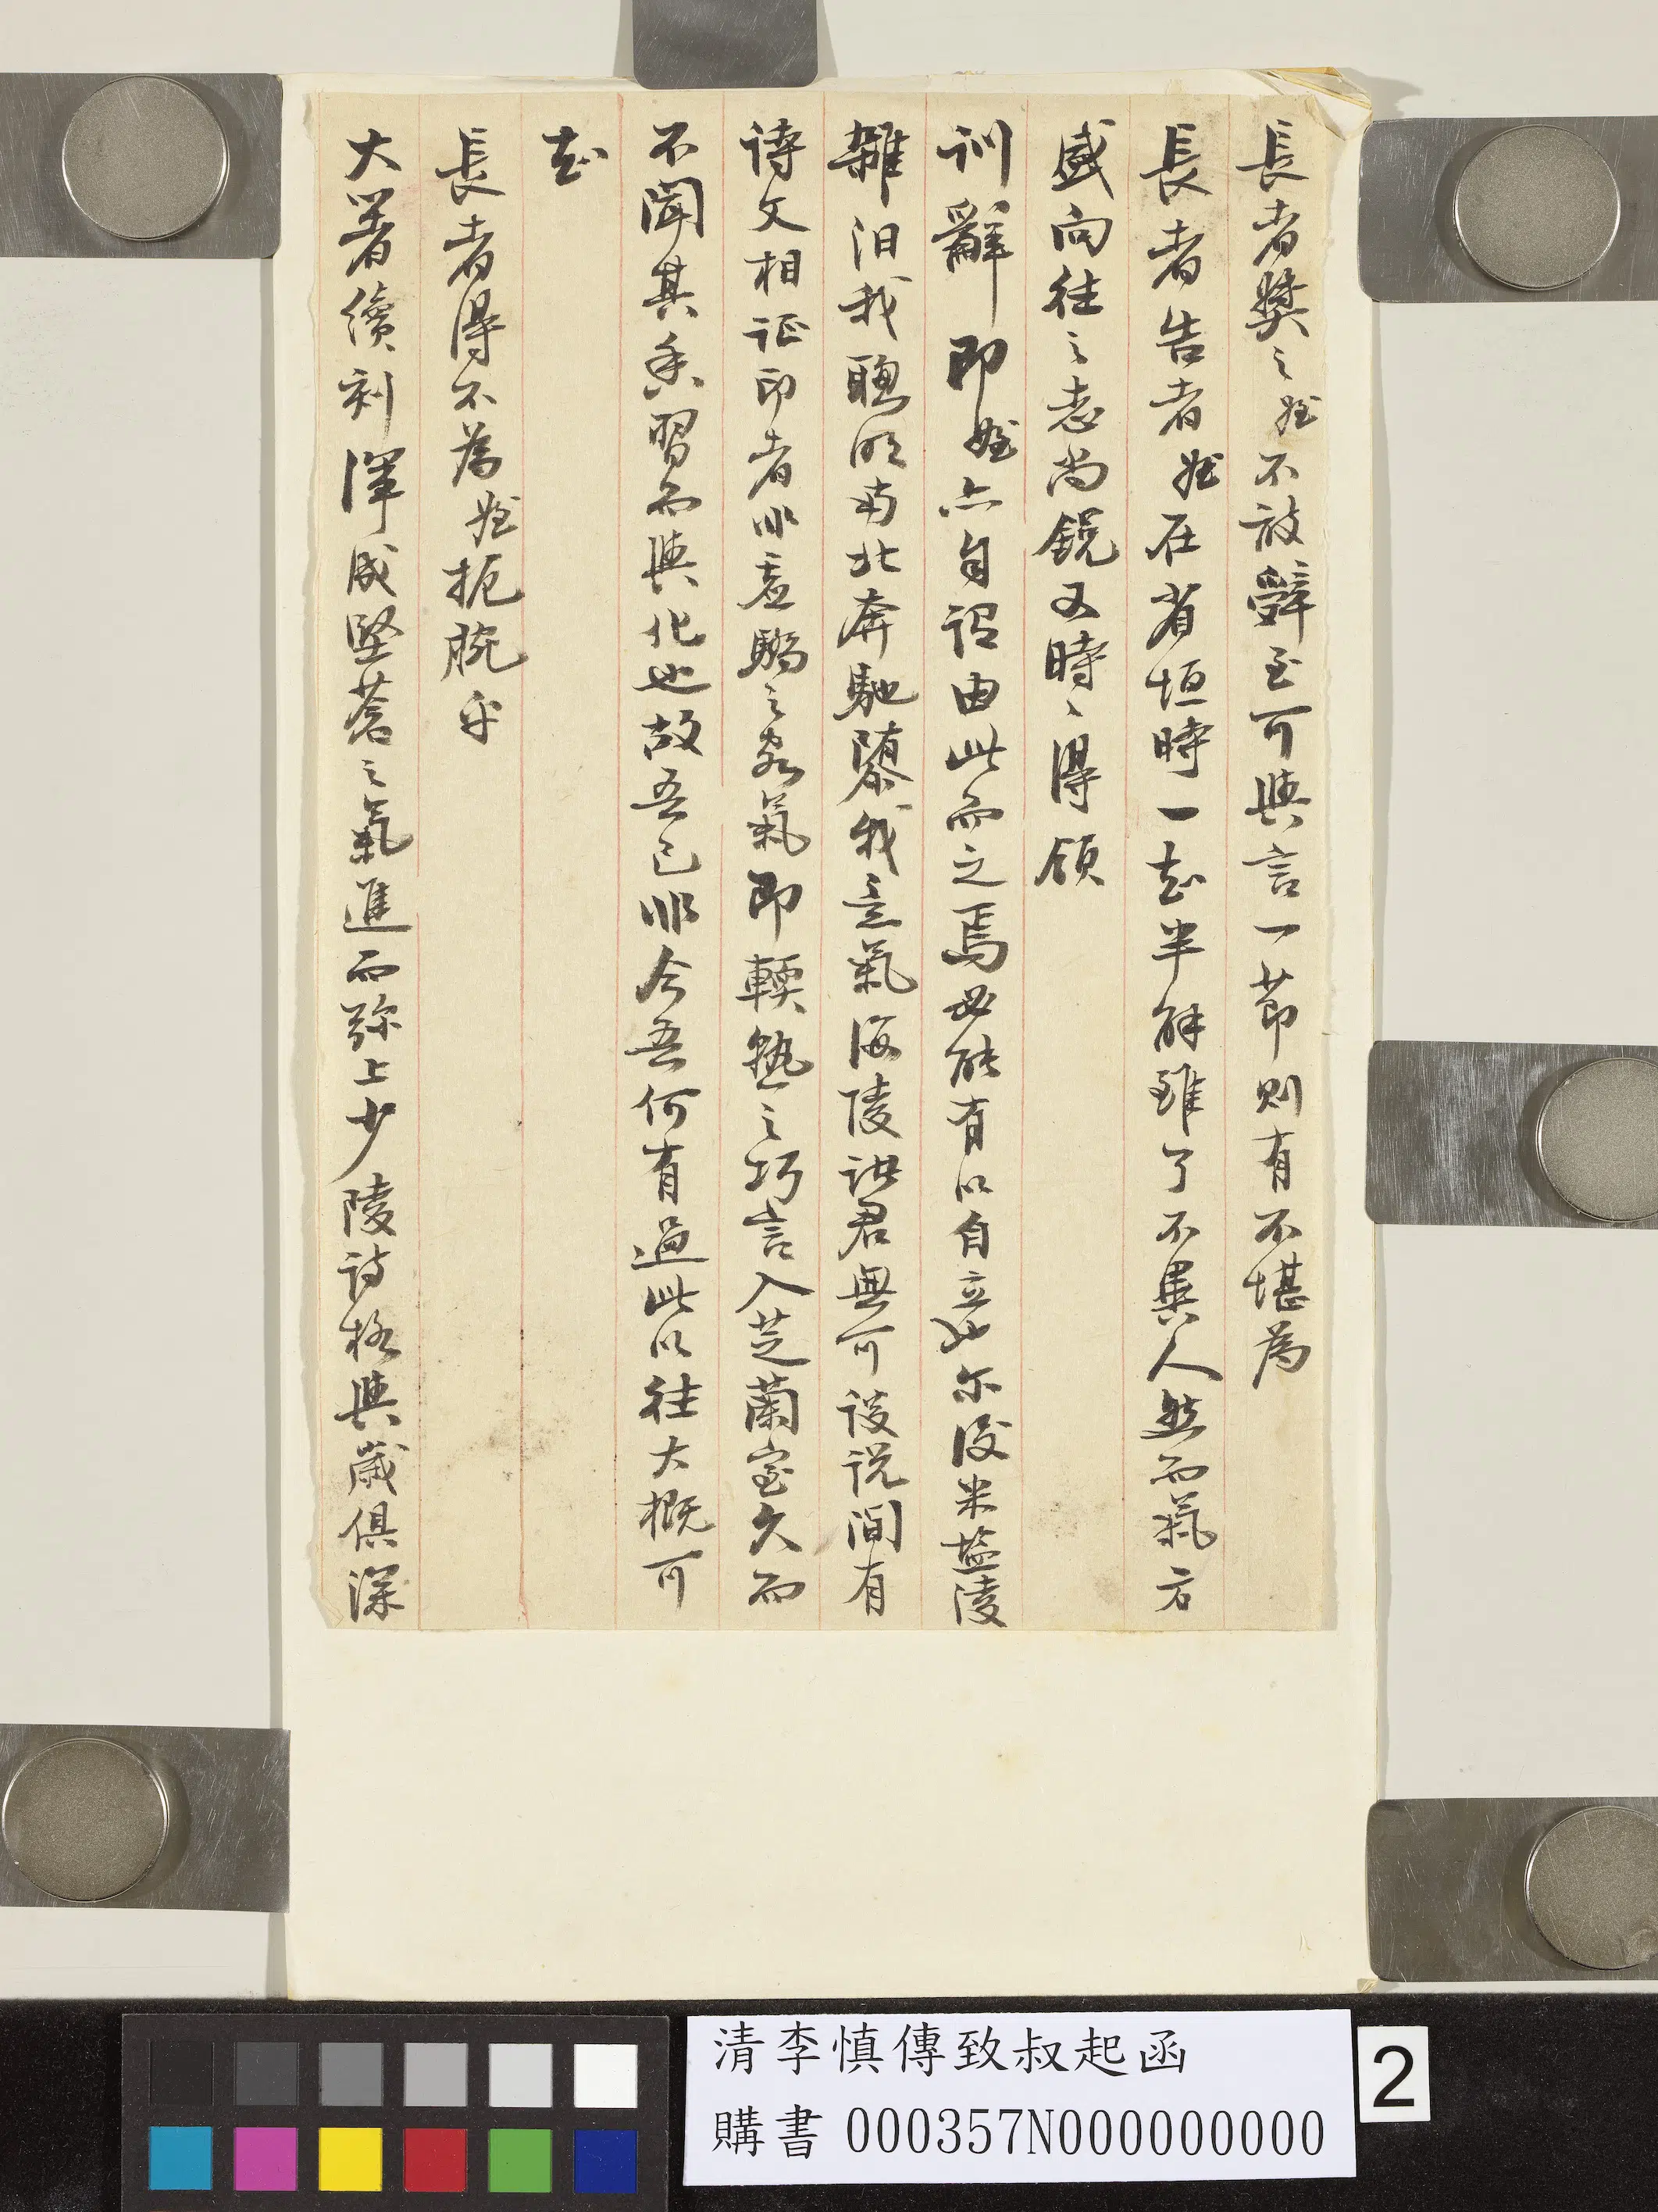 長者獎之姪不敢辭至可與言一節則有不堪為
長者告者姪在省垣時一知半解雖了不異人然而氣方
盛向往之志尚銳又時〻得領
訓辭即姪亦自謂由此而之焉必能有以自立也尔後米鹽陵
雜汩我聰明南北奔馳隳我意氣海陵諸君無可談說間有
詩文相証印者非虛驕之客氣即輭熟之巧言入芝蘭室久而
不聞其香習而與化也故吾已非今吾何有過此以往大概可
知
長者得不為姪扼腕乎
大著續刻渾成堅蒼之氣進而弥上少陵詩格與歲俱深
清李慎傳致叔起函
購書 000357N000000000
2